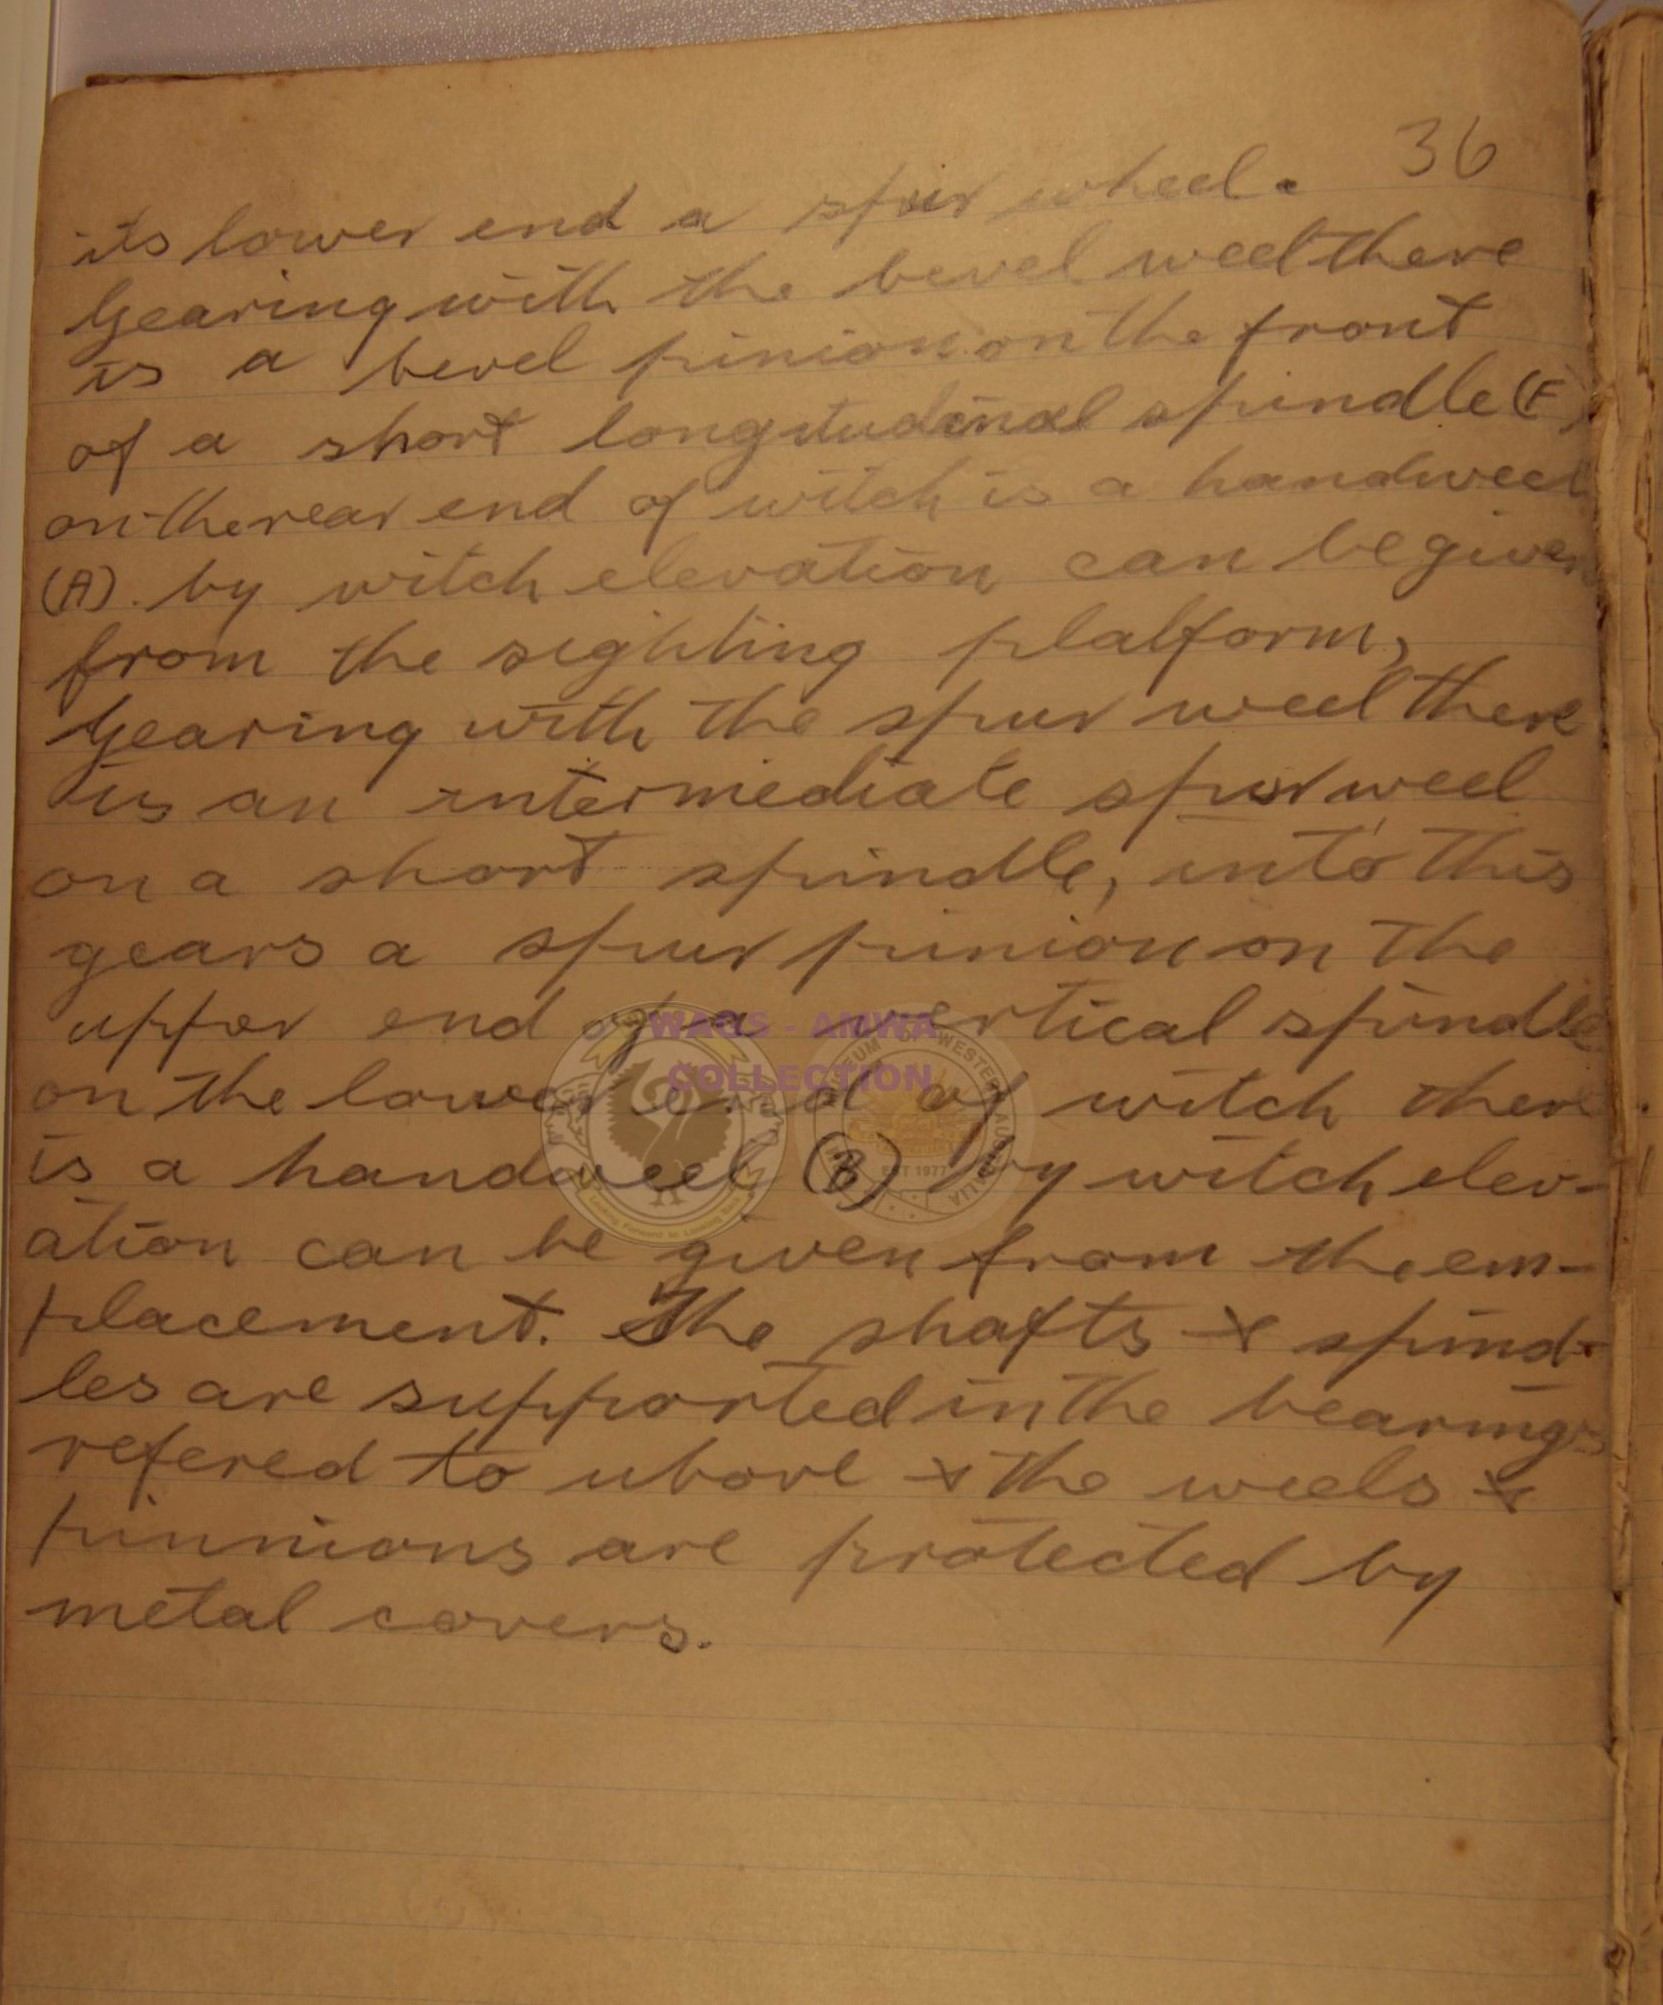 36
its lower end a spur wheel.
Gearing with the bevel weel there
is a bevel pinion on the front
of a short longitudinal spindle (F)
on the rear end of witch is a handweel
(A). by witch elevation can be given
from the sighting platform,
Gearing with the spur weel there
is an intermediate spur weel
on a short spindle, into this
gears a spur pinion on the
uppor end of a vertical spindle
on the lower end of witch there
is a handweel (B) by witch elev-
ation can be given from the em-
placement. The shafts & spind-
les are supported in the bearings
refered to above & the weels &
pinnions are protected by
metal covers.
WAGS - AMWA
COLLECTION
MUSEUM OF WESTERN AUSTRALIA
EST 1977
Looking Forward to Looking Back